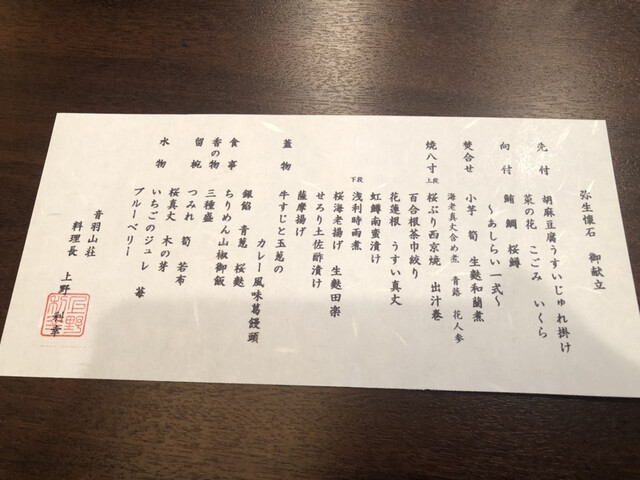 弥生懐石　御献立
先付　胡麻豆腐うすいじゅれ掛け
菜の花　こごみ　いくら
向付　鮪　鯛　桜鱒
～あしらい一式～
焚合せ　小芋　筍　生麩和蘭煮
海老真丈含め煮　青蕗　花人参
焼八寸　上段　桜ぶり西京焼　出汁巻
百合根茶巾絞り
花蓮根　うすい真丈
虹鱒南蛮漬け
下段　浅利時雨煮
桜海老揚げ　生麩田楽
せろり土佐酢漬け
薩摩揚げ
蓋物　牛すじと玉葱の
カレー風味葛饅頭
銀餡　青葱　桜麩
食事　ちりめん山椒御飯
香の物　三種盛
留椀　つみれ　筍　若布
桜真丈　木の芽
水物　いちごのジュレ　苺
ブルーベリー
音羽山荘
料理長　上野　利幸